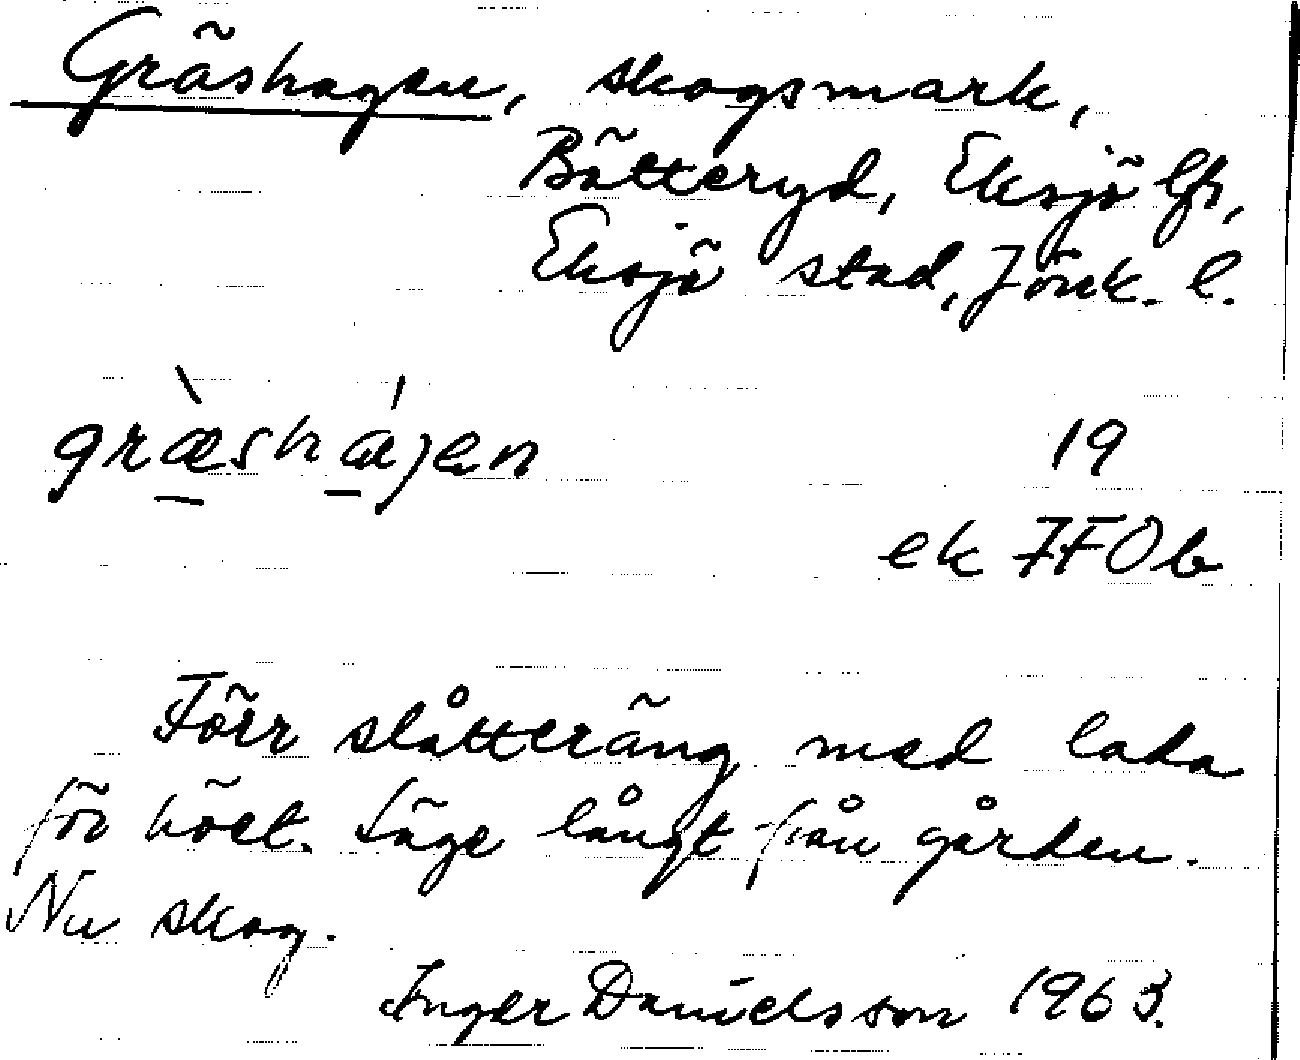 Gräshagen, skogsmark,
Bötteryd, Eksjö lfs,
Eksjö stad, Jönk. l.
græ̀shæ̀́jen
19
ek 7F0b
Förr slåtteräng med lada
för höet. Läge långt från gården.
Nu skog.
Inger Danielsson 1963.